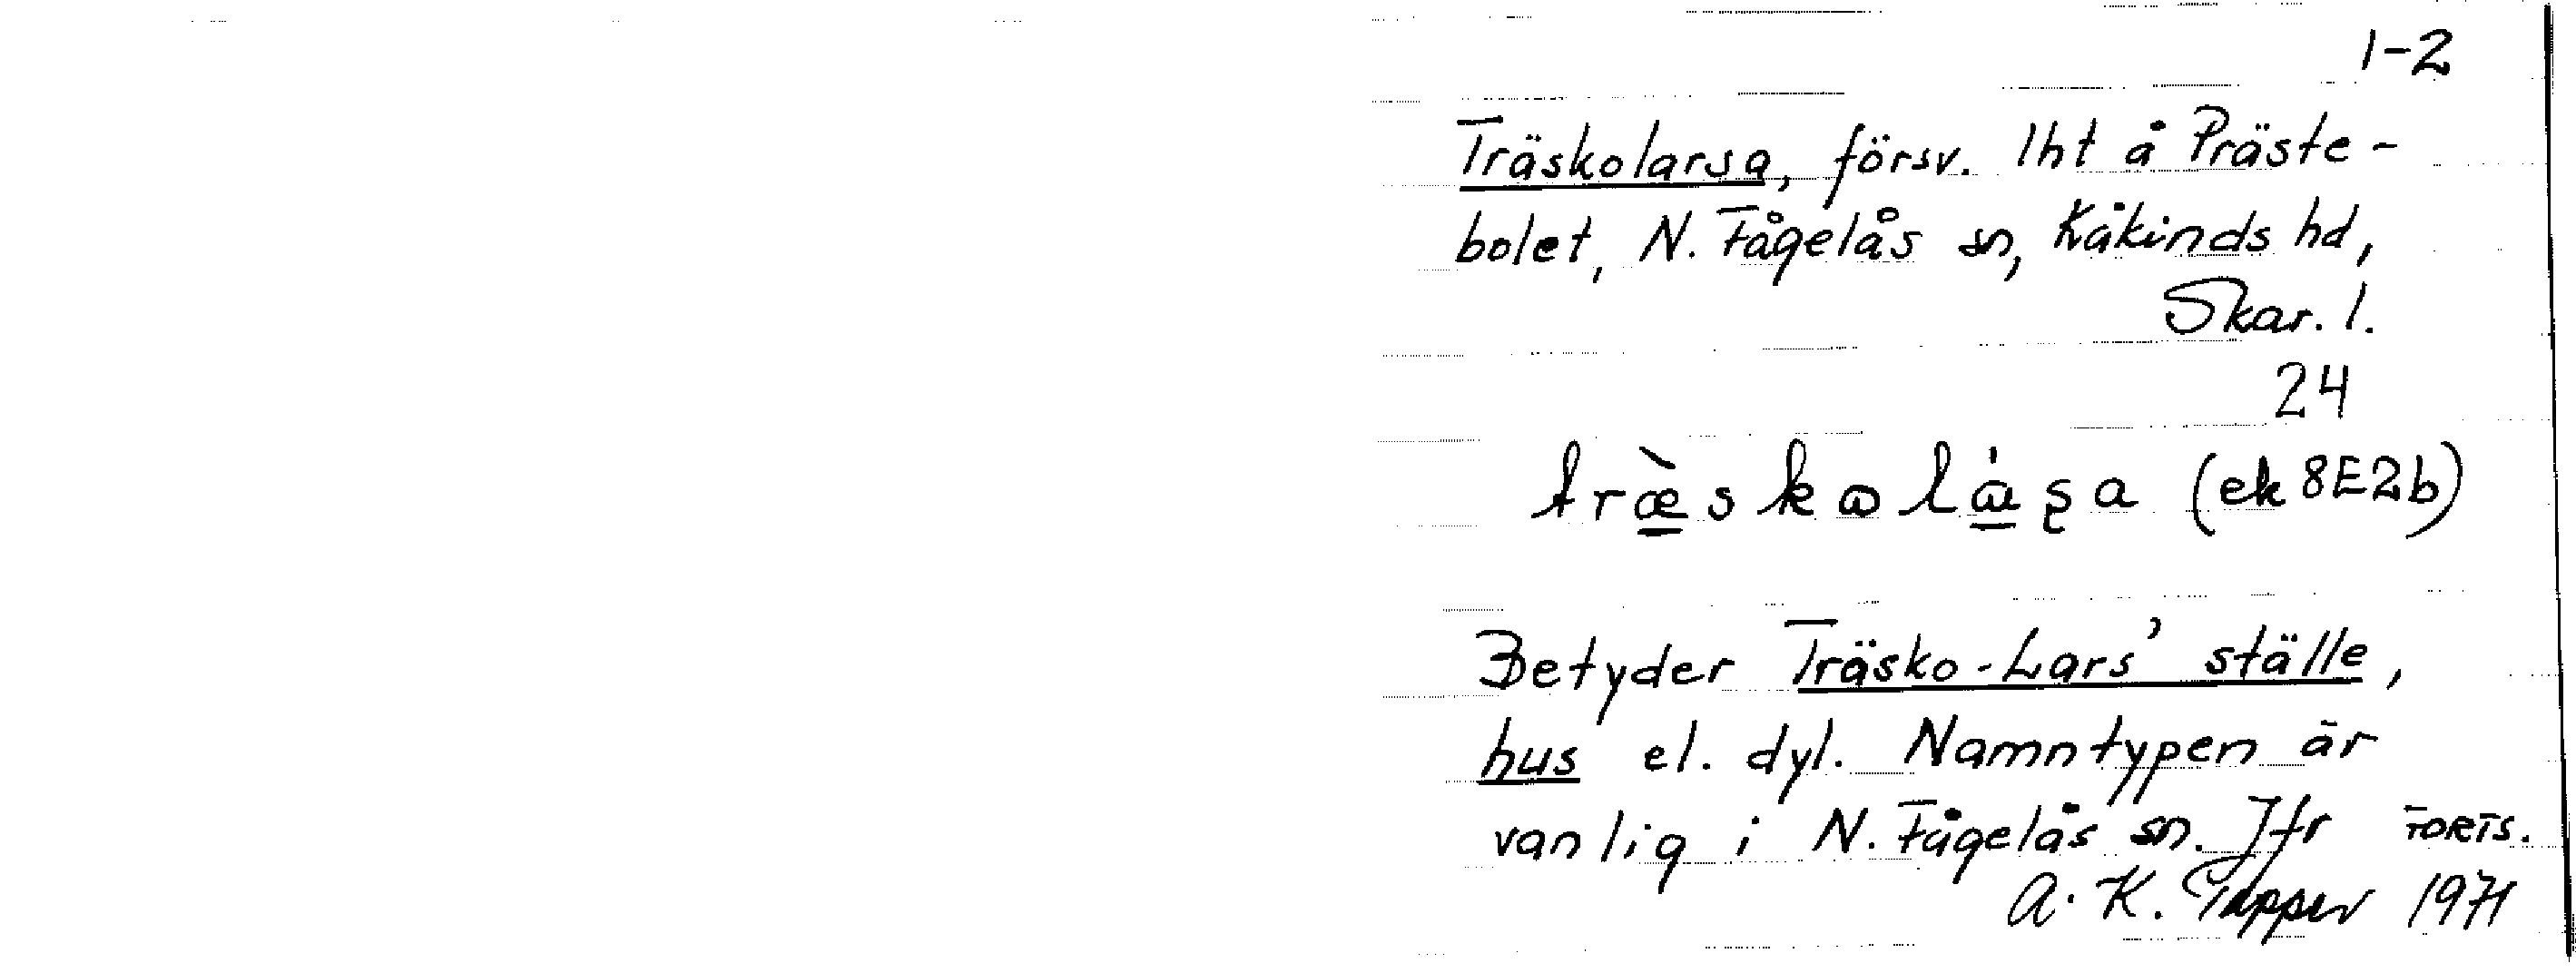 1-2
Träskolarsa, försv. lht å Präste-
bolet, N. Fågelås sn, Kåkinds hd,
Skar. l.
24
træ̀skωlɑ́ʂa (ek 8E2b)
Betyder Träsko-Lars' ställe,
hus el. dyl. Namntypen är
vanlig i N. Fågelås sn. Jfr FORTS.
A. K. Tapper 1971